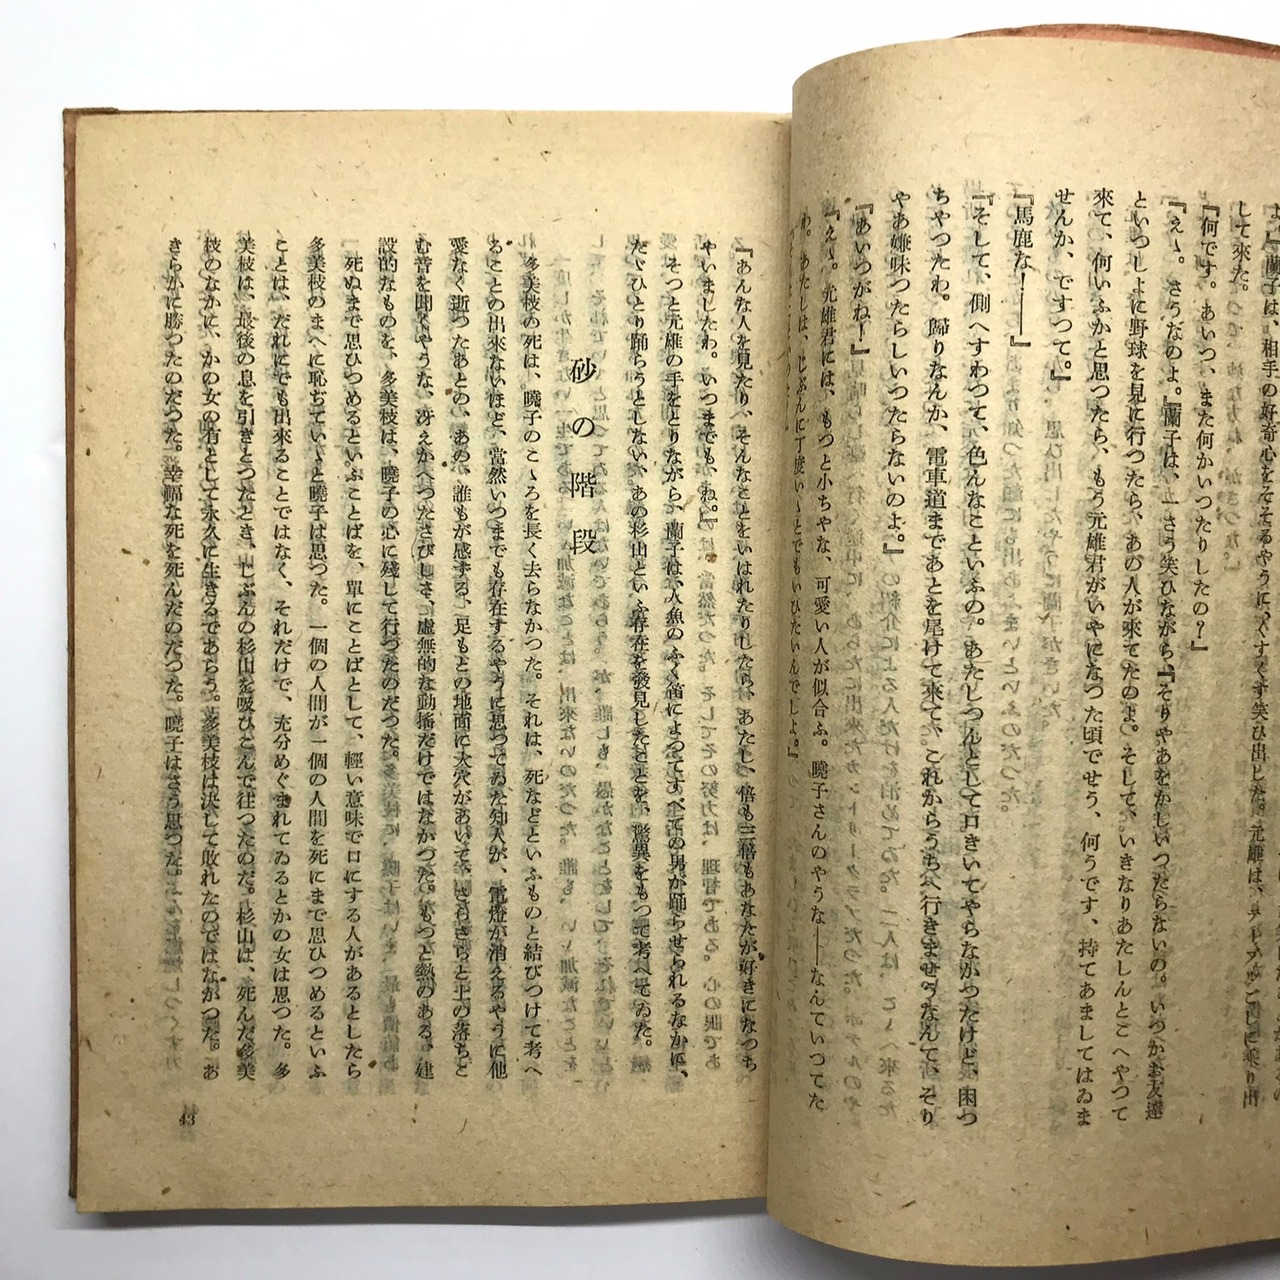 蘭子は、相手の好奇心をそそるやうに、くすくす笑ひ出した。元雄は、テーブルごしに乗り出
して來た。
『何です。あいつ、また何かいつたりしたの?』
『えゝ。さうなのよ。』蘭子は、一さう笑ひながら、『そりやあをかしいつたらないの。いつかお友達
といつしよに野球を見に行つたら、あの人が來てたのよ。そして、いきなりあたしんとこへやつて
來て、何いふかと思つたら、もう元雄君がいやになつた頃でせう、何うです、持てあましてはゐま
せんか、ですつて。』
『馬鹿な!――』
『そして、側へすわつて、色んなこといふの。あたしつんとして口きいてやらなかつたけど、困つ
ちやつたわ。歸りなんか、電車道まであとを尾けて來て、これからうちへ行きませうなんて、そり
やあ嫌味つたらしいつたらないのよ。』
『あいつがね!』
『えゝ。元雄君には、もつと小ちやな、可愛い人が似合ふ。曉子さんのやうな――なんていつてた
わ。あたしは、じぶんに丁度いゝとでもいひたいんでしよ。』
『あんな人を見たり、そんなことをいはれたりしたら、あたし、倍も二倍もあなたが好きになつち
やいましたわ。いつまでも、ね。』
そつと元雄の手をとりながら、蘭子は、人魚のふく笛によつてすべての男が踊らせられるなかに、
たゞひとり踊らうとしないあの杉山といふ存在を發見したことを、驚異をもつて考へてゐた。
砂の階段
多美枝の死は、曉子のこゝろを長く去らなかつた。それは、死などといふものと結びつけて考へ
ることの出來ないほど、當然いつまでも存在するやうに思つてゐた知人が、電燈が消えるやうに他
愛なく逝つたあとの、あの、誰もが感ずる、足もとの地面に大穴があいて、さらさらと土の落ちと
む音を聞くやうな、冴えかへつたさびしさ、虚無的な動搖だけではなかつた。もつと熱のある、建
設的なものを、多美枝は、曉子の心に殘して行つたのだつた。
死ぬまで思ひつめるといふことばを、單にことばとして、輕い意味で口にする人があるとしたら
多美枝のまへに恥ぢていゝと曉子は思つた。一個の人間が一個の人間を死にまで思ひつめるといふ
ことは、だれにでも出來ることではなく、それだけで、充分めぐまれてゐるとかの女は思つた。多
美枝は、最後の息を引きとつたとき、じぶんの杉山を吸ひこんで往つたのだ。杉山は、死んだ多美
枝のなかに、かの女の有として永久に生きるであらう。多美枝は決して敗れたのではなかつた。あ
きらかに勝つたのだつた。幸福な死を死んだのだつた。曉子はさう思つた。
43